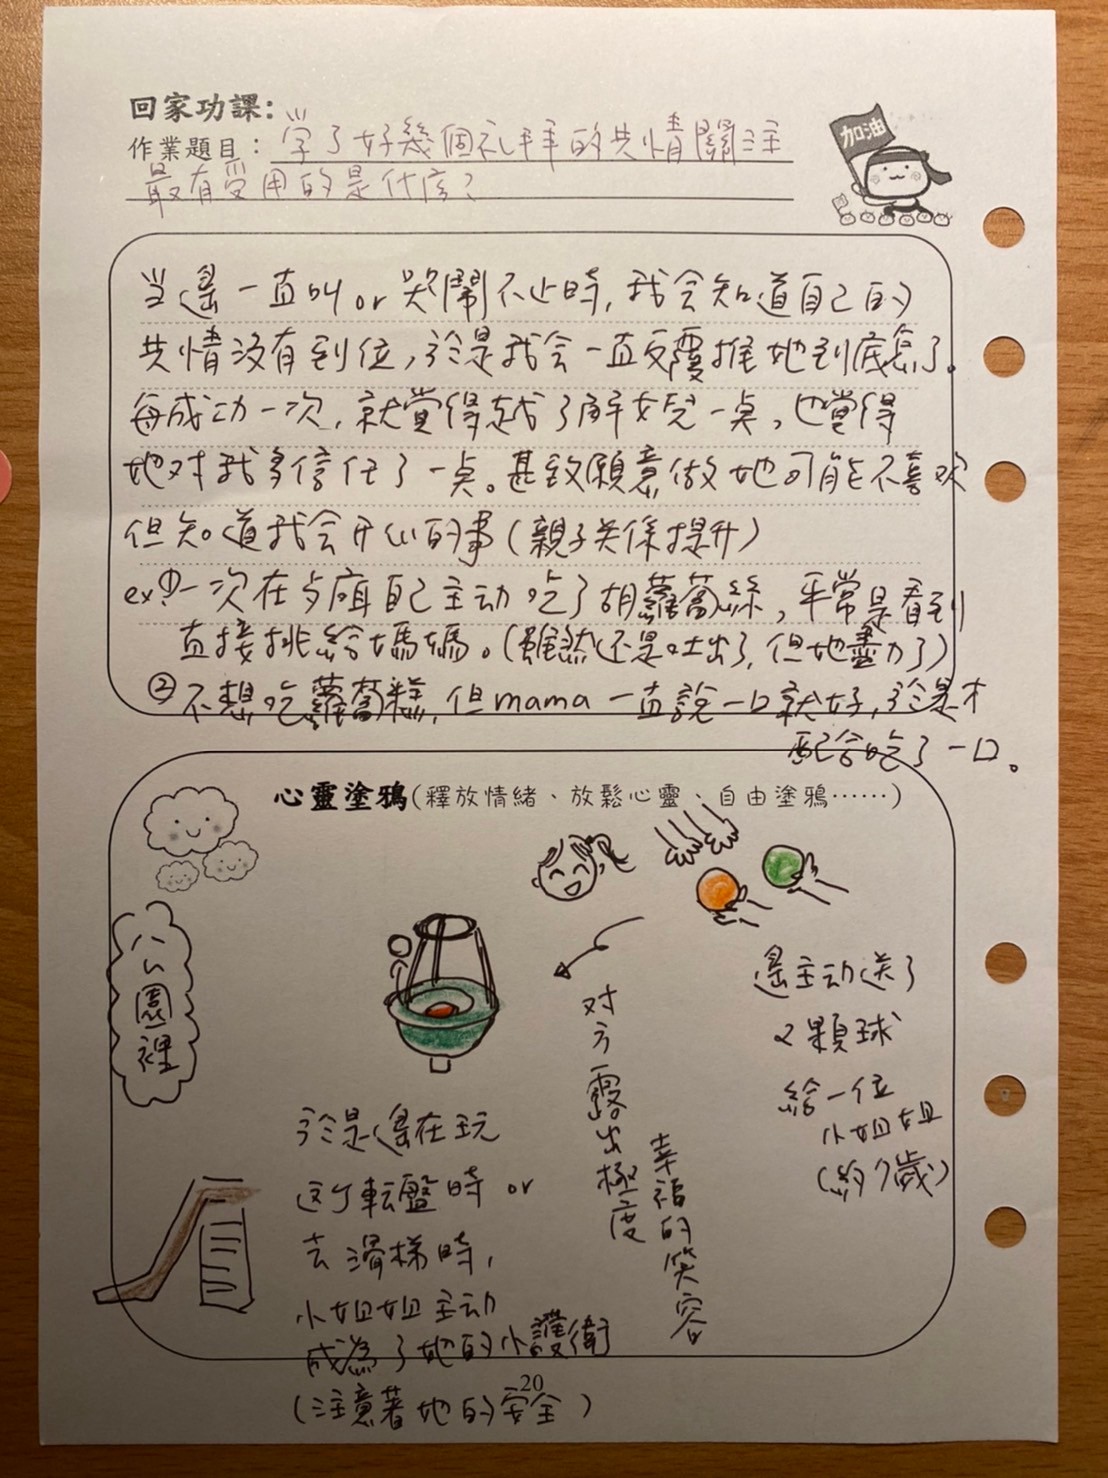 回家功課:
作業題目：学了好幾個礼拜的共情關注
最有受用的是什广?
加油
当暹一直叫or哭鬧不止時,我会知道自己的
共情沒有到位,於是我会一直反覆推她到底怎了。
每成功一次,就覺得越了解女兒一点,也覺得
她对我多信任了一点。甚致願意做她可能不喜欢
但知道我会开心的事(親子关係提升)
ex:①一次在 自己主动吃了胡蘿蔔絲,平常是看到
直接挑給媽媽。(雖然还是吐出了,但她盡力了)
②不想吃蘿蔔糕,但mama一直說一口就好,於是才
配合吃了一口。
心靈塗鴉(釋放情緒、放鬆心靈、自由塗鴉……)
公園裡
暹主动送了
2顆球
給一位
小姐姐
(約7歲)
对方露出極度
幸福的笑容
於是暹在玩
这个転盤時or
去滑梯時,
小姐姐主动
成為了她的小護衛
(注意著她的安全)
20